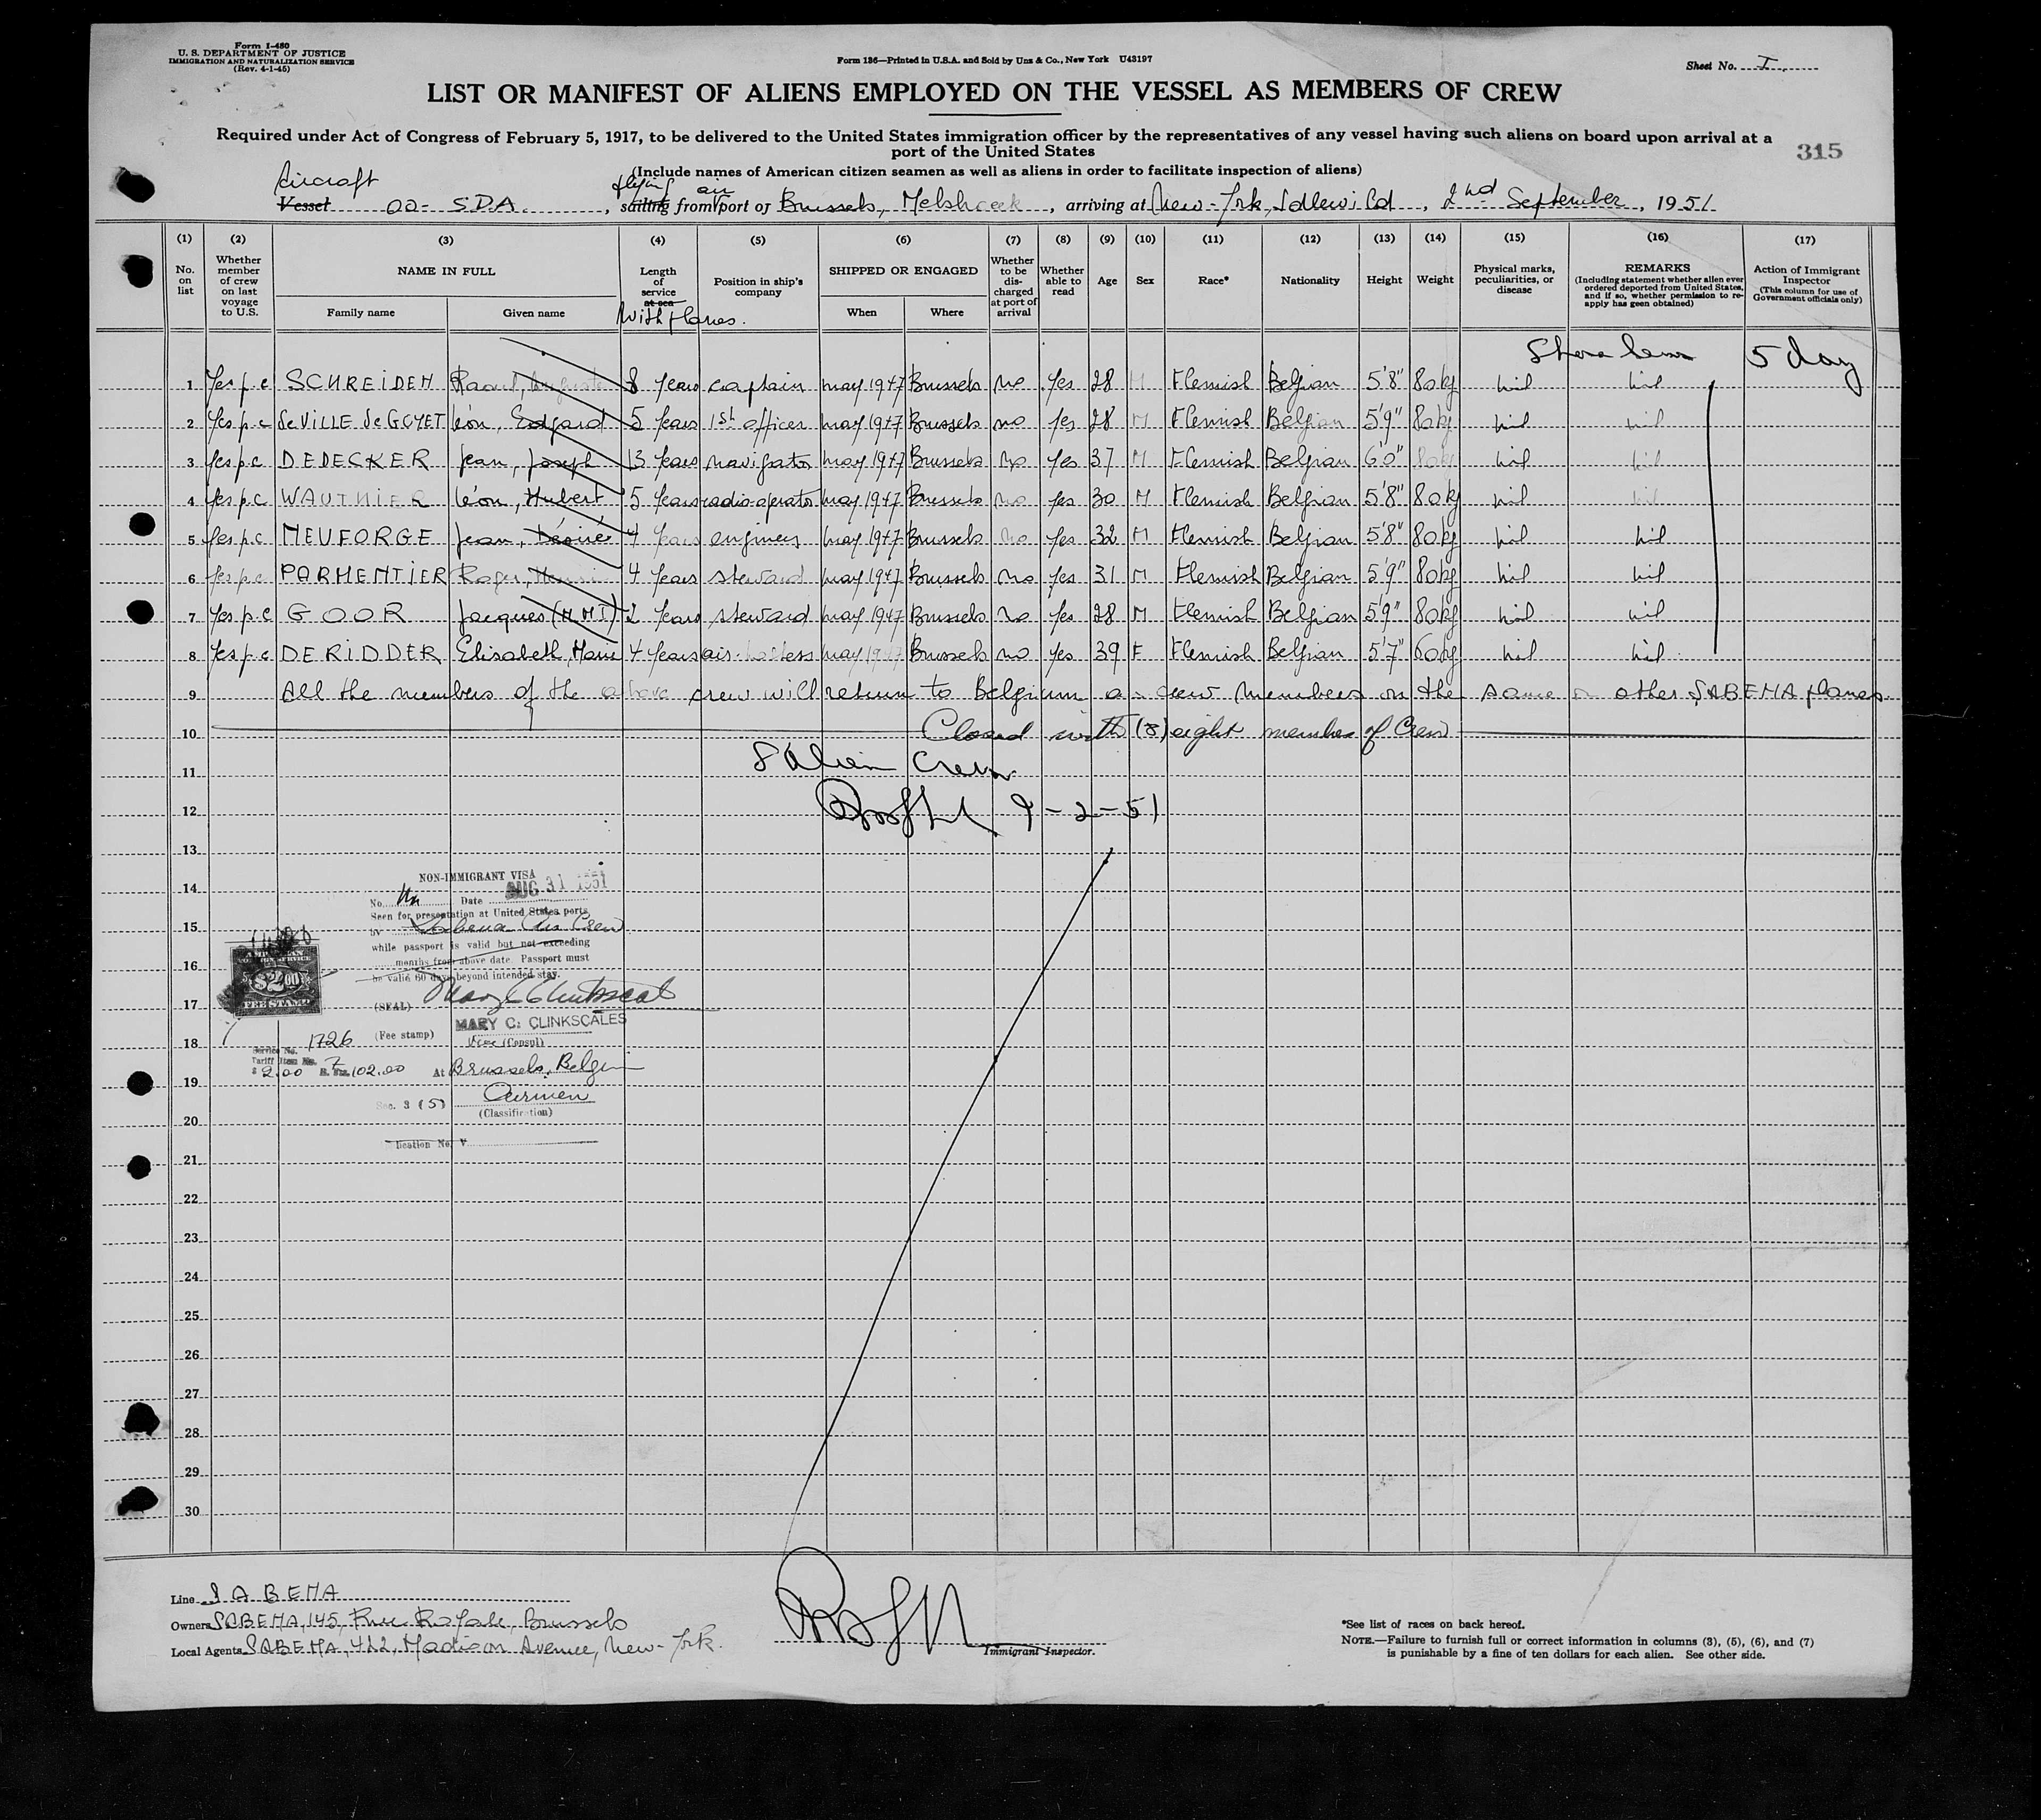 Form I-480
U. S. DEPARTMENT OF JUSTICE
IMMIGRATION AND NATURALIZATION SERVICE
(Rev. 4-1-45)
Form 136—Printed in U.S.A. and Sold by Unz & Co., New York U43197
Sheet No. I
LIST OR MANIFEST OF ALIENS EMPLOYED ON THE VESSEL AS MEMBERS OF CREW
Required under Act of Congress of February 5, 1917, to be delivered to the United States immigration officer by the representatives of any vessel having such aliens on board upon arrival at a
port of the United States
315
(Include names of American citizen seamen as well as aliens in order to facilitate inspection of aliens)
Aircraft flying air
Vessel OO-SDA, sailing from port of Brussels, Melsbroek, arriving at New-York, Idlewild, 2nd September, 1951
(1) (2) (3) (4) (5) (6) (7) (8) (9) (10) (11) (12) (13) (14) (15) (16) (17)
No. on list
Whether member of crew on last voyage to U.S.
NAME IN FULL
Family name
Given name
Length of service at sea
With planes.
Position in ship's company
SHIPPED OR ENGAGED
When
Where
Whether to be discharged at port of arrival
Whether able to read
Age
Sex
Race*
Nationality
Height
Weight
Physical marks, peculiarities, or disease
REMARKS
(Including statement whether alien ever ordered deported from United States, and if so, whether permission to re-apply has geen obtained)
Action of Immigrant Inspector
(This column for use of Government officials only)
5 day
1 Yes p.c SCHREIDEN Raoul, 8 Years captain may 1947 Brussels no Yes 28 M Flemish Belgian 5'8" 80kg nil nil
2 Yes p.c de VILLE de GOYET Léon, Edgard 5 Years 1st officer may 1947 Brussels no Yes 28 M Flemish Belgian 5'9" 80kg nil nil
3 Yes p.c DEDECKER Jean, Joseph 13 Years navigator may 1947 Brussels no Yes 37 M Flemish Belgian 6'0" 80kg nil nil
4 Yes p.c WAUTHIER Léon, Hubert 5 Years radio-operator may 1947 Brussels no Yes 30 M Flemish Belgian 5'8" 80kg nil nil
5 Yes p.c NEUFORGE Jean, Désiré 4 Years engineer may 1947 Brussels no Yes 32 M Flemish Belgian 5'8" 80kg nil nil
6 Yes p.c PARMENTIER Roger, Henri 4 Years steward may 1947 Brussels no Yes 31 M Flemish Belgian 5'9" 80kg nil nil
7 Yes p.c GOOR Jacques (NMI) 2 Years steward may 1947 Brussels no Yes 28 M Flemish Belgian 5'9" 80kg nil nil
8 Yes p.c DERIDDER Elisabeth, Marie 4 Years air-hostess may 1947 Brussels no Yes 39 F Flemish Belgian 5'7" 60kg nil nil
9 All the members of the above crew will return to Belgium as crew members on the same or other SABENA planes.
10 Closed with (8) eight members of Crew
11 8 Alien Crew
12 9-2-51
13
14
15
16
17
18
19
20
21
22
23
24
25
26
27
28
29
30
NON-IMMIGRANT VISA
No. Date AUG 31 1951
Seen for presentation at United States ports
by Sabena Air Crew
while passport is valid but not exceeding
months from above date. Passport must
be valid 60 days beyond intended stay.
(SEAL)
MARY C. CLINKSCALES
(Fee stamp) Vice (Consul)
At Brussels, Belgium
Sec. 3 (5) Airmen
(Classification)
$2.00
FEE STAMP
Service No. 1726
Tariff Item No. 7
$ 2.00 102.00
Line SABENA
Owners SABENA, 145, Rue Royale, Brussels
Local Agents SABENA, 422, Madison Avenue, New-York.
Immigrant Inspector.
*See list of races on back hereof.
NOTE.—Failure to furnish full or correct information in columns (3), (5), (6), and (7)
is punishable by a fine of ten dollars for each alien. See other side.